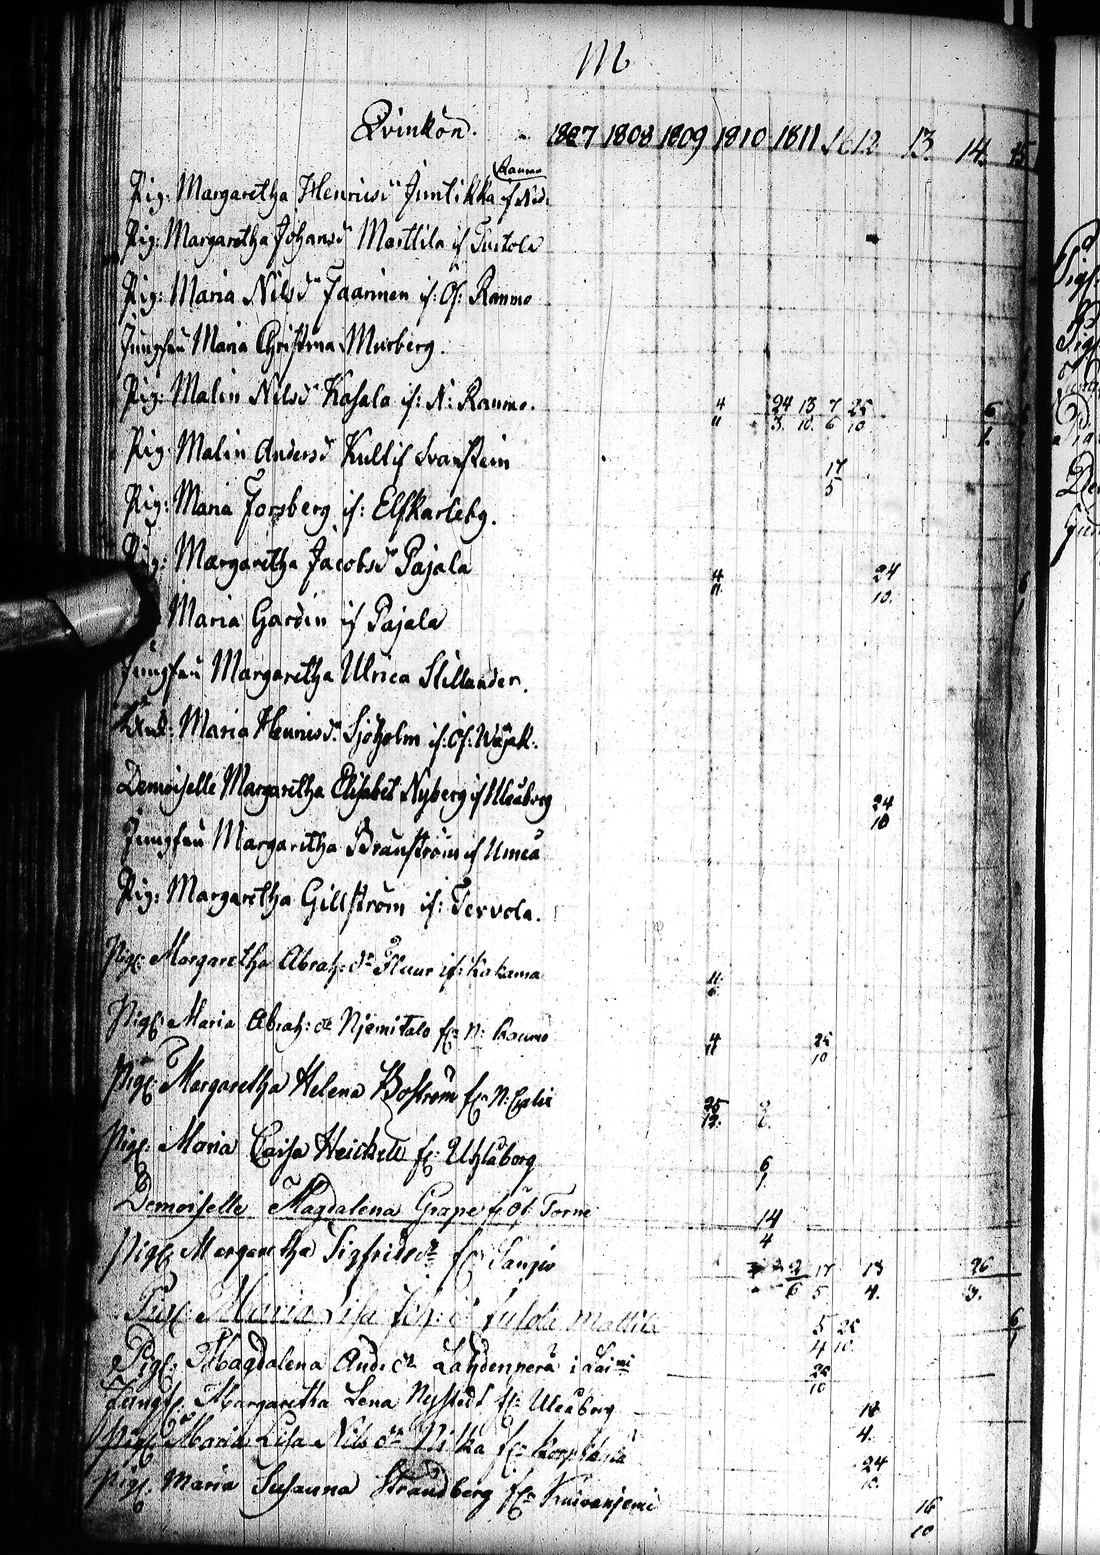 M
Qvinkön. 1807 1808 1809 1810 1811 1812 13. 14. 15
Raumo
Pig: Margaretha Henricsdr Juntikka if Ned:
Pig: Margaretha Johansdr Marttila if Turtola
Pig: Maria Nilsdr Faarinen if: Öf: Raumo
Jungfru Maria Christina Murberg.
Pig: Malin Nilsdr Kasala if: N: Raumo. 4 24 13 7 25 6
11 3. 10. 6 10 1.
Pig: Malin Andersdr Kulli if Svanstein 17
5
Pig: Maria Forsberg if: Elfkarleby.
Pig: Margaretha Jacobsdr Pajala 4 24
11. 10.
Maria Gardin if Pajala
Jungfru Margaretha Ulrica Stillander.
Maria Henricsdr Sjöholm if: Öf:
Demoiselle Margaretha Elisabet Nyberg if Uleåborg 24
10
Jungfru Margaretha Brauström if Umeå
Pig: Margaretha Gillström if: Tervola.
Pig: Margaretha Abrah: dr if: Kakama 11.
6
Pig: Maria Abrah: dr Njemitalo fr: N: Raumo 4 25
11 10
Pig: Margaretha Helena Boström fr N: 25
12.
Pig: Maria Caisa Heickell fr: Uhlåborg 6
1
Demoiselle Magdalena Grape fr Öf: Torne 14
4
Pig: Margaretha Sigfridsdr fr 2 17 13 26
6 5. 4. 3.
Pig: Maria Lisa Joh: dr Mattila 5 25 6
4 10. 1
Pig: Magdalena And: dr Lahdenperä i 25
10
Jungf: Margaretha Lena Nystedt fr: Uleåborg 18
4.
Pig: Maria Lisa Nils dr fr: 24
10.
Pig: Maria Susanna Strandberg fr: Kuivaniemi 16
10